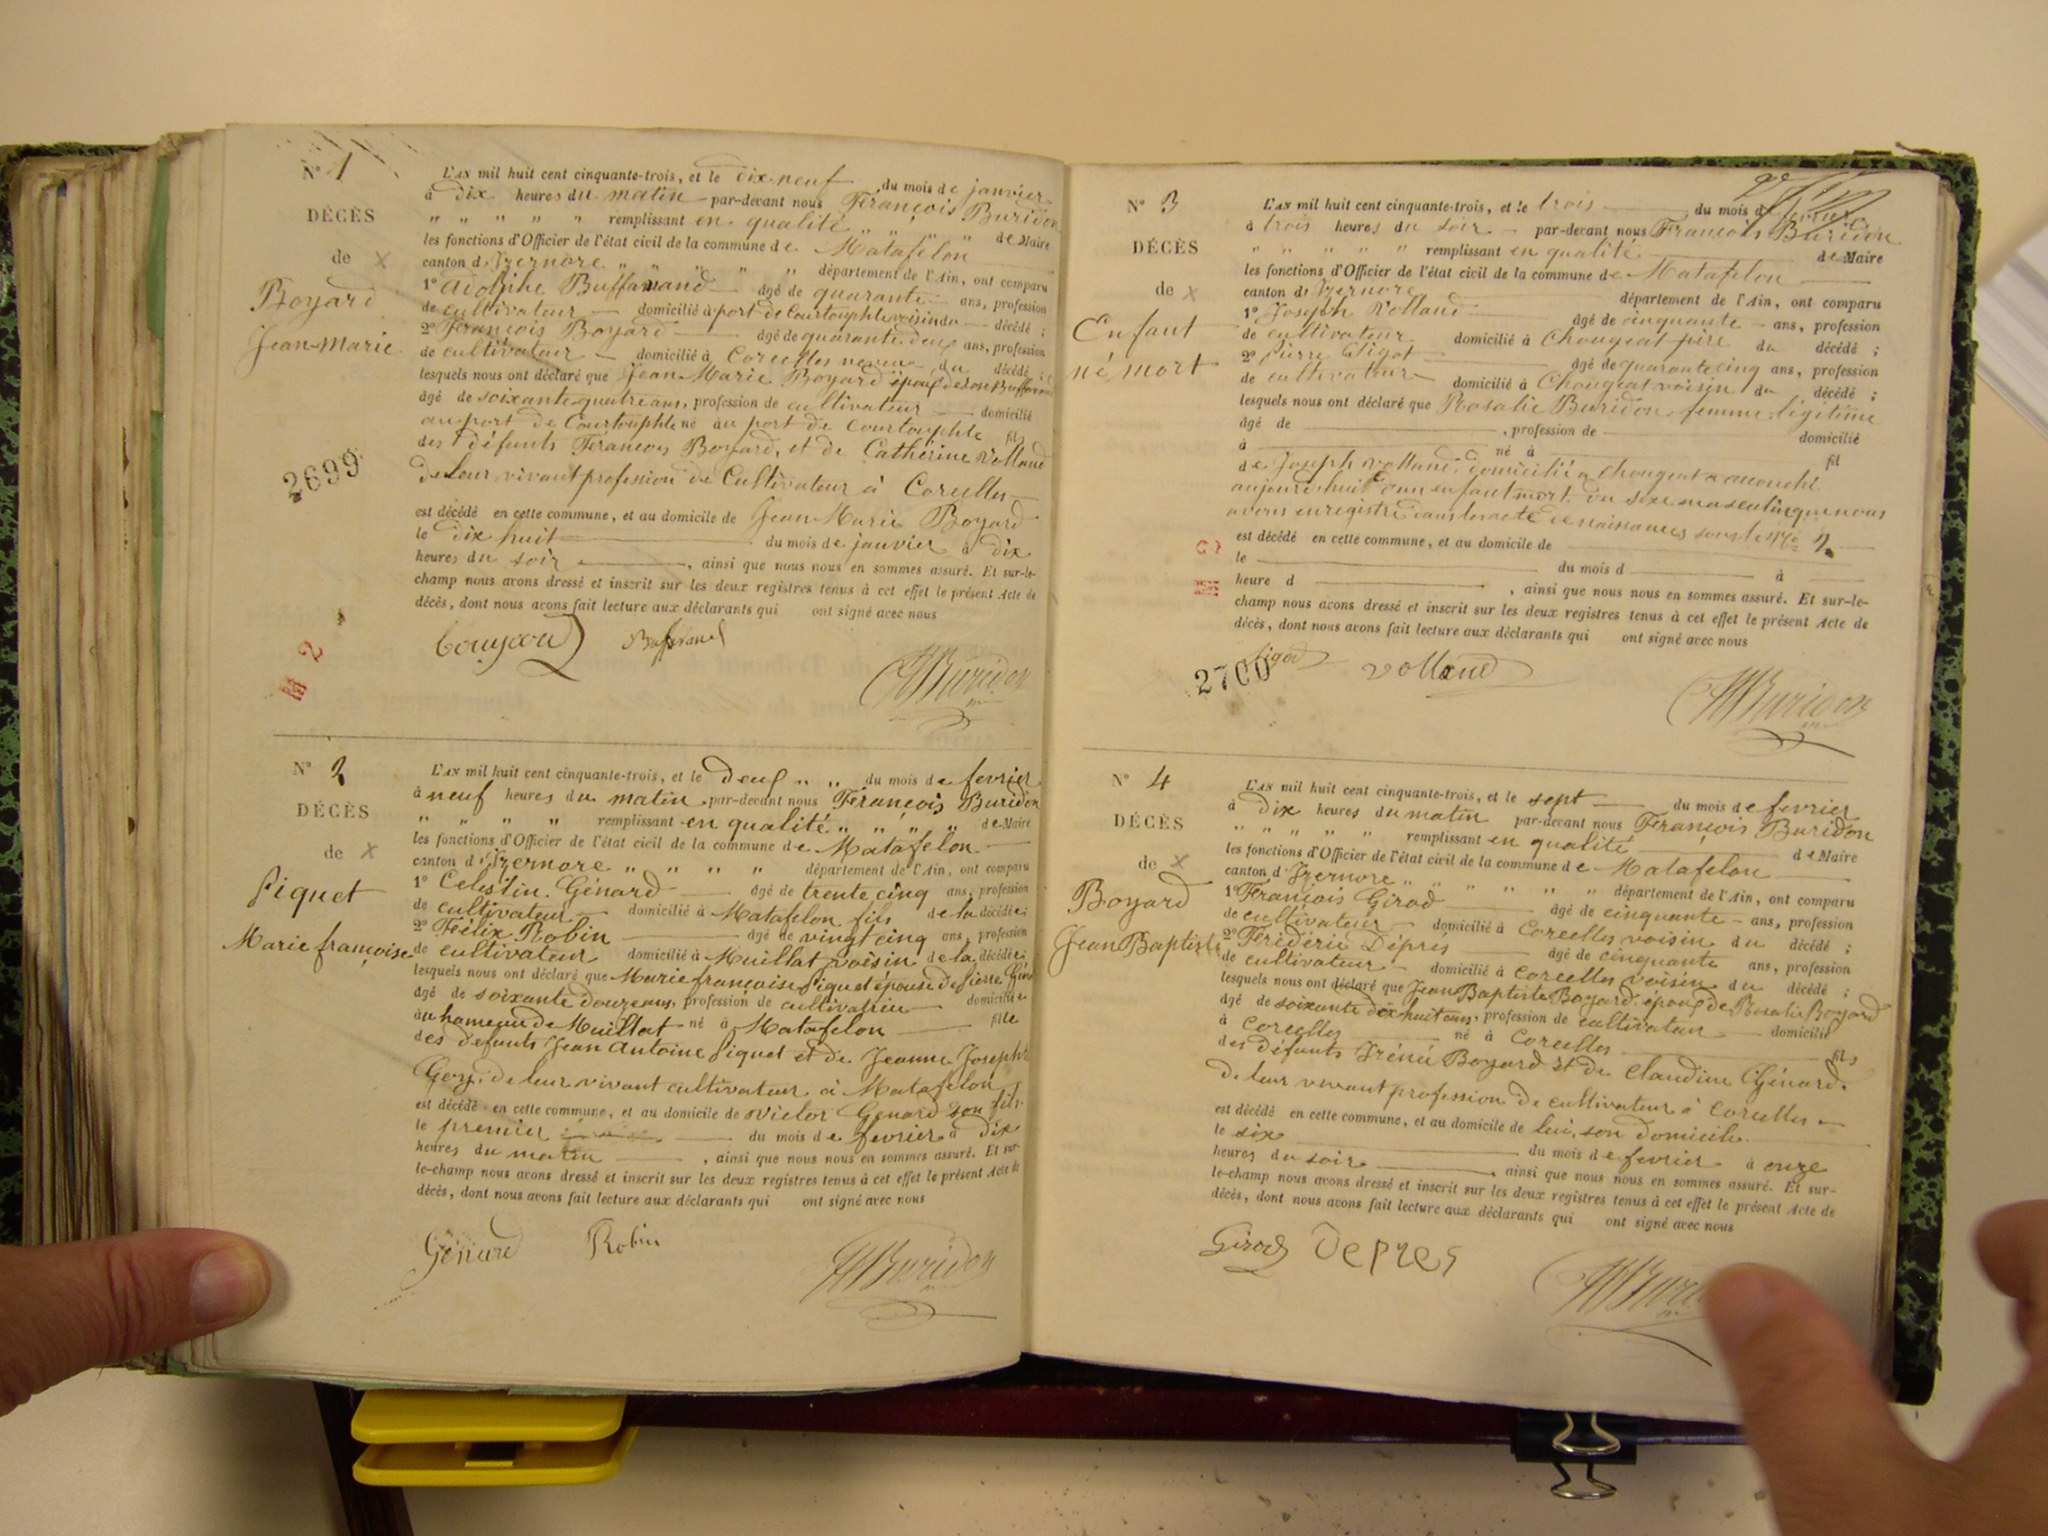 N° 1
DÉCÈS
de
Boyard
Jean-Marie
2699
L'AN mil huit cent cinquante-trois, et le dix neuf du mois de janvier
à dix heures du matin par-devant nous François Buridon
" " " " " remplissant en qualité " " " " de Maire
les fonctions d'Officier de l'état civil de la commune de Matafelon
canton d'Izernore " " " " " département de l'Ain, ont comparu
1° Adolphe Buffavand âgé de quarante ans, profession
de cultivateur domicilié à port de Courtouphle voisin du décédé ;
2° François Boyard âgé de quarante deux ans, profession
de cultivateur domicilié à Corcelles neveu du décédé ;
lesquels nous ont déclaré que Jean-Marie Boyard époux de
âgé de soixante quatre ans, profession de cultivateur domicilié
au port de Courtouphle né au port de Courtouphle fils
des défunts François Boyard, et de Catherine Volland
de leur vivant profession de Cultivateur à Corcelles
est décédé en cette commune, et au domicile de Jean Marie Boyard
le dix huit du mois de janvier à dix
heures du soir , ainsi que nous nous en sommes assuré. Et sur-le-
champ nous avons dressé et inscrit sur les deux registres tenus à cet effet le présent Acte de
décès, dont nous avons fait lecture aux déclarants qui ont signé avec nous
Buffavand
Buridon
M 2
N° 2
DÉCÈS
de
Piquet
Marie françoise
L'AN mil huit cent cinquante-trois, et le deux " " du mois de fevrier
à neuf heures du matin par-devant nous François Buridon
" " " " remplissant en qualité " " " " de Maire
les fonctions d'Officier de l'état civil de la commune de Matafelon
canton d'Izernore " " " " département de l'Ain, ont comparu
1° Celestin Génard âgé de trente cinq ans, profession
de cultivateur domicilié à Matafelon fils de la décédée ;
2° Félix Robin âgé de vingt cinq ans, profession
de cultivateur domicilié à Muillat voisin de la décédée ;
lesquels nous ont déclaré que Marie françoise Piquet épouse de Pierre
âgé de soixante douze ans, profession de cultivatrice domiciliée
au hameau de Muillat né à Matafelon fille
des défunts Jean Antoine Piquet et de Jeanne Josephe
de leur vivant cultivateur à Matafelon
est décédé en cette commune, et au domicile de Victor Génard son fils
le premier du mois de fevrier à dix
heures du matin , ainsi que nous nous en sommes assuré. Et sur-
le-champ nous avons dressé et inscrit sur les deux registres tenus à cet effet le présent Acte de
décès, dont nous avons fait lecture aux déclarants qui ont signé avec nous
Génard Robin
Buridon
N° 3
DÉCÈS
de
Enfant
né mort
L'AN mil huit cent cinquante-trois, et le trois du mois de fevrier
à trois heures du soir par-devant nous François Buridon
" " " " " remplissant en qualité de Maire
les fonctions d'Officier de l'état civil de la commune de Matafelon
canton d'Izernore département de l'Ain, ont comparu
1° Joseph Volland âgé de cinquante ans, profession
de cultivateur domicilié à Chougeat père du décédé ;
2° Pierre Sigot âgé de quarante cinq ans, profession
de cultivateur domicilié à Chougeat voisin du décédé ;
lesquels nous ont déclaré que Rosalie Buridon femme légitime
âgé de , profession de domicilié
à né à fil
de Joseph Volland domicilié à Chougeat a accouché
aujourd'huit d'un enfant mort du sexe masculin que nous
avons enregistré dans les acte de naisances sous le N° 2
est décédé en cette commune, et au domicile de
le du mois d à
heure d , ainsi que nous nous en sommes assuré. Et sur-le-
champ nous avons dressé et inscrit sur les deux registres tenus à cet effet le présent Acte de
décès, dont nous avons fait lecture aux déclarants qui ont signé avec nous
2700
Volland
Buridon
N° 4
DÉCÈS
de
Boyard
Jean Baptiste
L'AN mil huit cent cinquante-trois, et le sept du mois de fevrier
à dix heures du matin par-devant nous François Buridon
" " " " " remplissant en qualité de Maire
les fonctions d'Officier de l'état civil de la commune de Matafelon
canton d'Izernore " " " " " " département de l'Ain, ont comparu
1° François Girod âgé de cinquante ans, profession
de cultivateur domicilié à Corcelles voisin du décédé ;
2° Frideric Déprés âgé de cinquante ans, profession
de cultivateur domicilié à Corcelles voisin du décédé ;
lesquels nous ont déclaré que Jean Baptiste Boyard époux de Rosalie Boyard
âgé de soixante dix huit ans, profession de cultivateur domicilié
à Corcelles né à Corcelles fils
des défunts Iréné Boyard et de Claudine Génard.
de leur vivant profession de cultivateur à Corcelles
est décédé en cette commune, et au domicile de lui, son domicile.
le six du mois de fevrier à onze
heures du soir , ainsi que nous nous en sommes assuré. Et sur-
le-champ nous avons dressé et inscrit sur les deux registres tenus à cet effet le présent Acte de
décès, dont nous avons fait lecture aux déclarants qui ont signé avec nous
Girod Depres